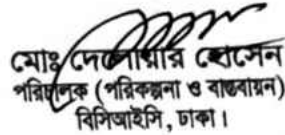 মোঃ দেলোয়ার হোসেন
পরিচালক (পরিকল্পনা ও বাস্তবায়ন)
বিসিআইসি, ঢাকা।